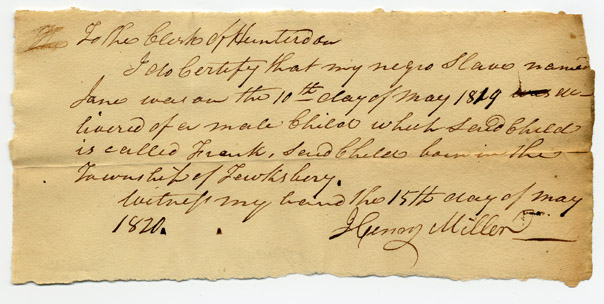 To the Clerk of Hunterdon
I do Certify that my negro Slave named
Jane was on the 10th day of May 1819 was de-
livered of a male Child which Said Child
is called Frank, Said Child born in the
Township of Tewksbery.
Witness my hand the 15th day of May
1820.
Henry Miller